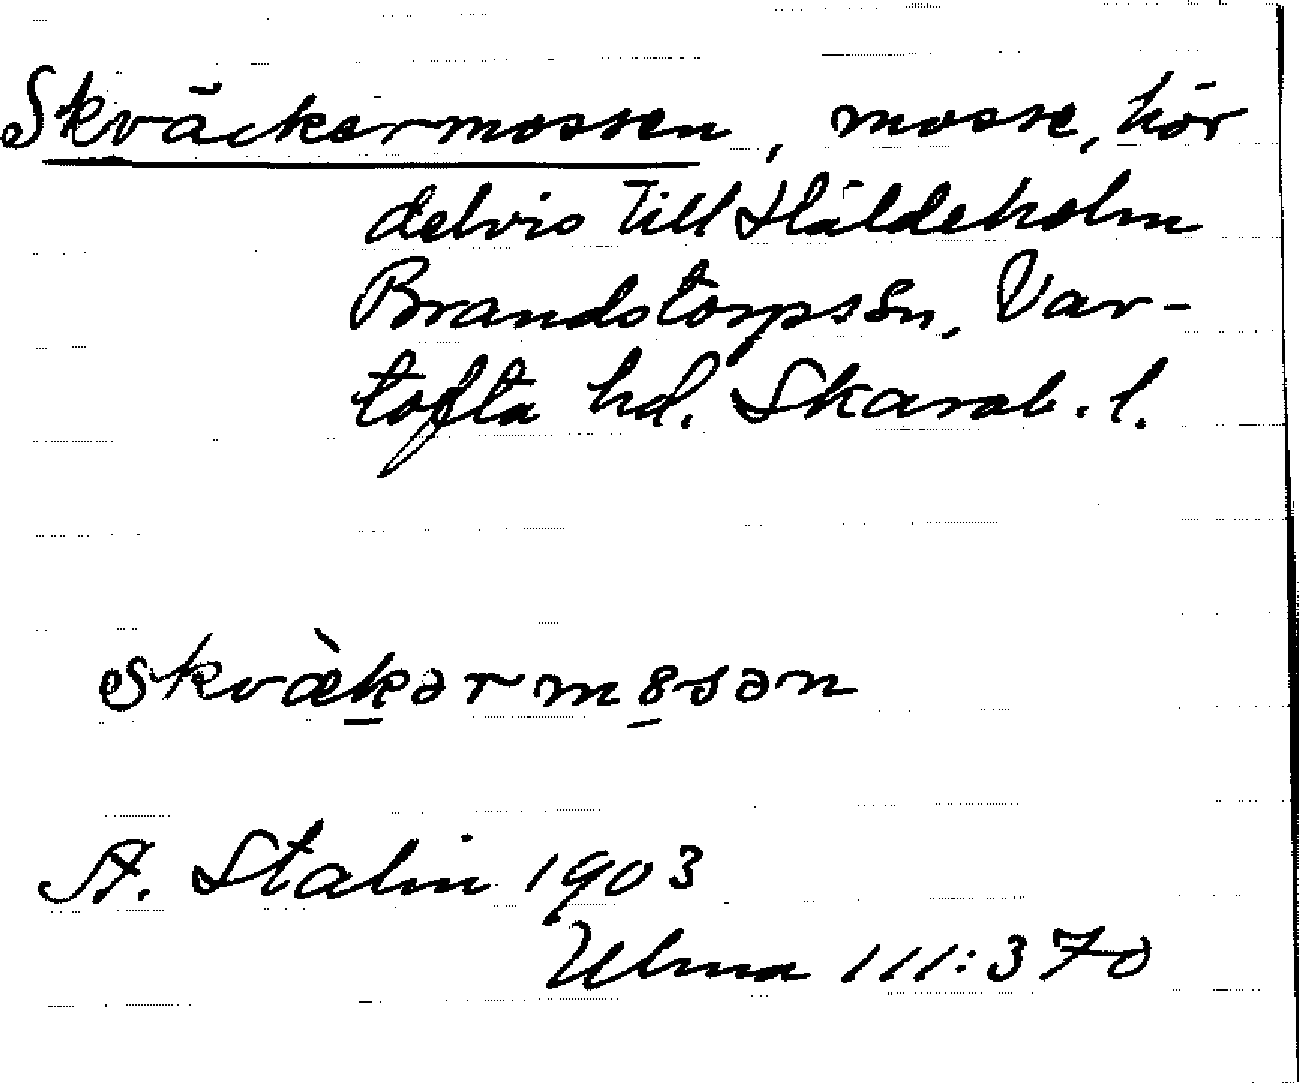 Skväckermossen, mosse, hör
delvis till Håldeholm
Brandstorps sn, Var-
tofta hd. Skarab. l.
skvæ̀kərmosən
A. Stalin 1903
Ulma 111:370